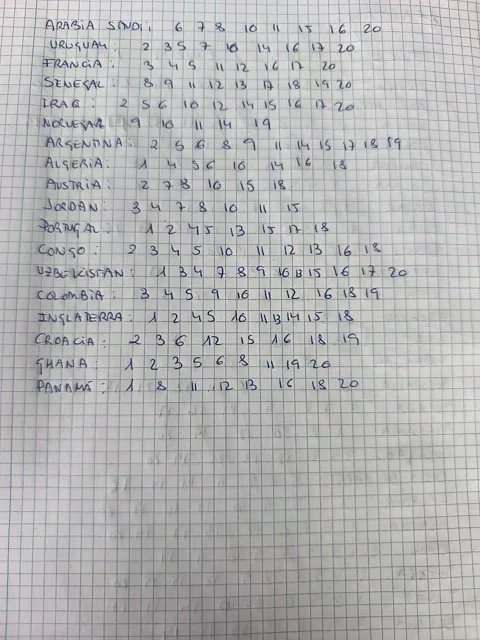 ARABIA SAUDI: 6 7 8 10 11 15 16 20
URUGUAY: 2 3 5 7 10 14 16 17 20
FRANCIA: 3 4 5 11 12 16 17 20
SENEGAL: 8 9 11 12 13 17 18 19 20
IRAQ: 2 5 6 10 12 14 15 16 17 20
NORUEGA: 9 10 11 14 19
ARGENTINA: 2 5 6 8 9 11 14 15 17 18 19
ALGERIA: 1 4 5 6 10 14 16 18
AUSTRIA: 2 7 8 10 15 18
JORDAN: 3 4 7 8 10 11 15
PORTUGAL: 1 2 4 5 13 15 17 18
CONGO: 2 3 4 5 10 11 12 13 16 18
UZBEKISTAN: 1 3 4 7 8 9 10 13 15 16 17 20
COLOMBIA: 3 4 5 9 10 11 12 16 18 19
INGLATERRA: 1 2 4 5 10 11 13 14 15 18
CROACIA: 2 3 6 12 15 16 18 19
GHANA: 1 2 3 5 6 8 11 19 20
PANAMÁ: 1 8 11 12 13 16 18 20